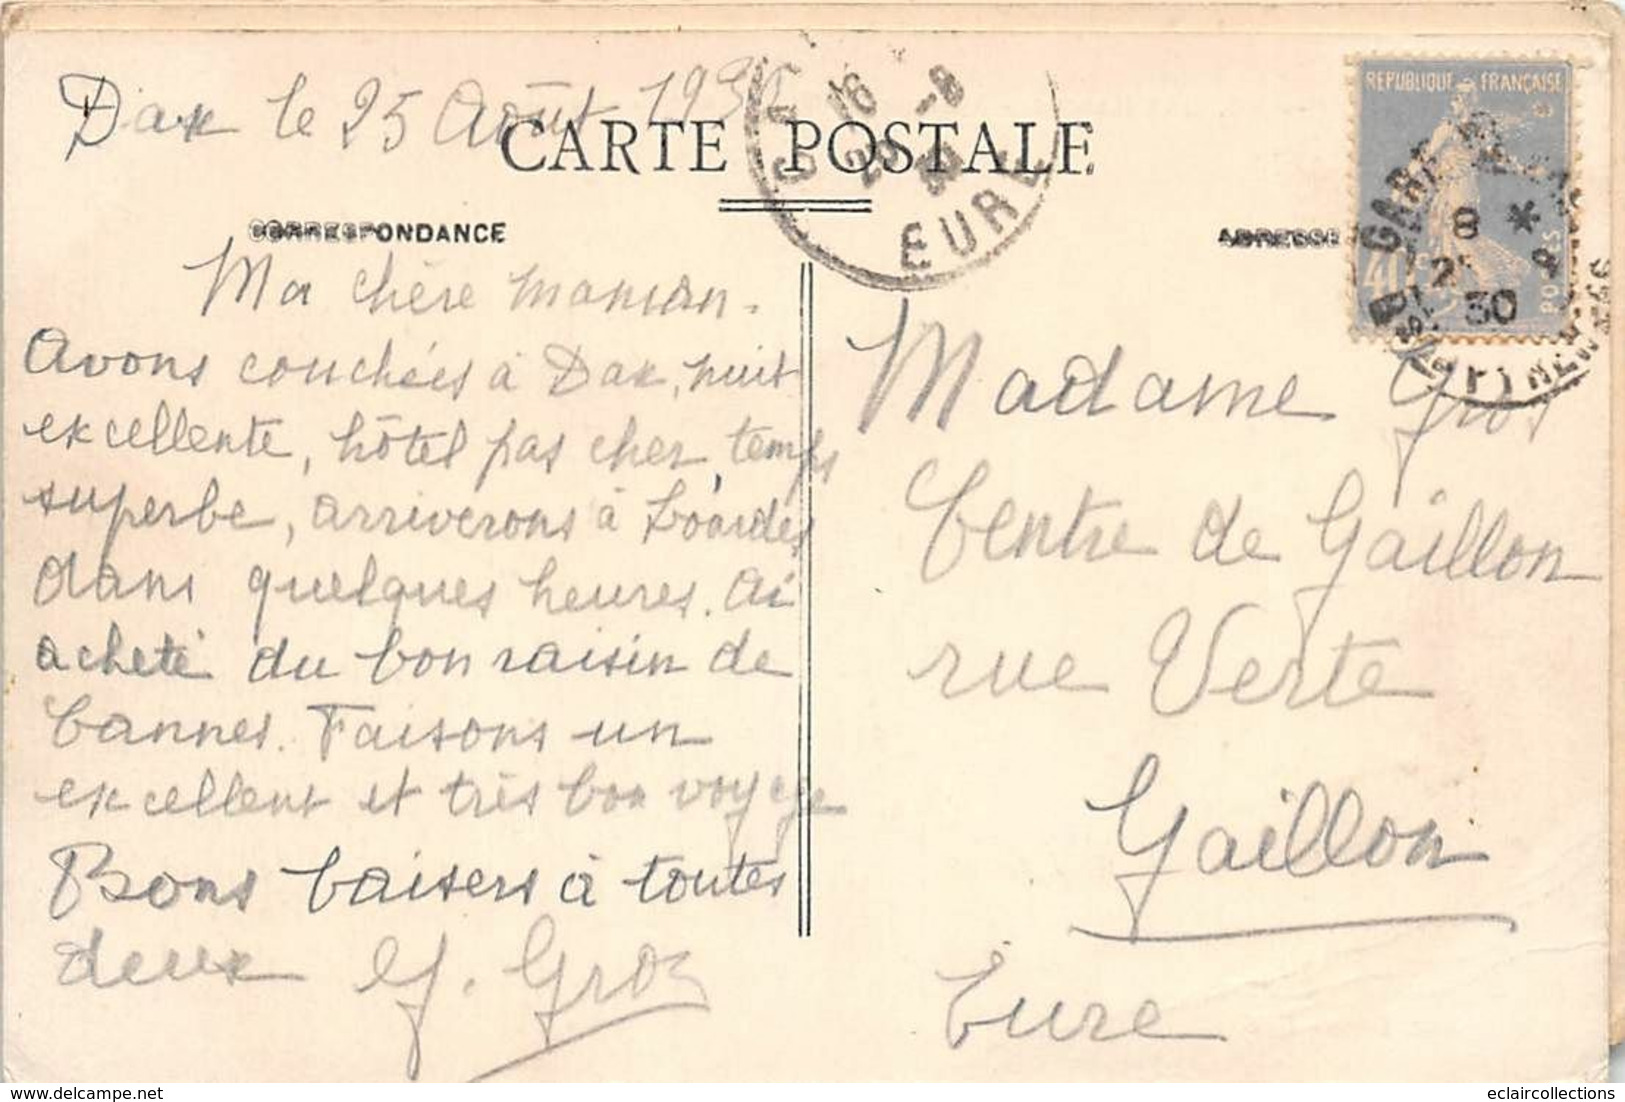 Dax le 25 Août 1930
CARTE POSTALE
16
-8
30
EURE
REPUBLIQUE FRANÇAISE
GARE
8 *
30
40
POSTES
CORRESPONDANCE
ADRESSE
Ma chère maman.
Avons couchées à Dax, nuit
excellente, hôtel pas cher, temps
superbe, arriverons à Lourdes
dans quelques heures. Ai
acheté du bon raisin de
Cannes. Faisons un
excellent et très bon voyage
Bons baisers à toutes
deux
Gros
Madame Gros
Centre de Gaillon
rue Verte
Gaillon
Eure
delcampe.net
eclaircollections